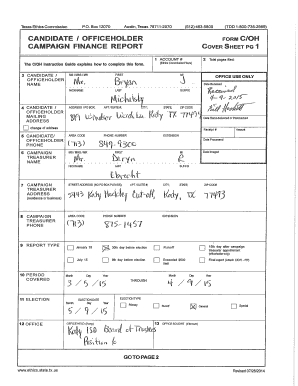 Texas Ethics Commission P.O. Box 12070 Austin, Texas 78711-2070 (512) 463-5800 (TDD 1-800-735-2989)
CANDIDATE / OFFICEHOLDER
CAMPAIGN FINANCE REPORT
FORM C/OH
COVER SHEET PG 1
The C/OH Instruction Guide explains how to complete this form.
1 ACCOUNT #
2 Total pages filed:
3 CANDIDATE / OFFICEHOLDER NAME
MS / MRS / MR FIRST MI
Mr. Bryan J
NICKNAME LAST SUFFIX
OFFICE USE ONLY
Received
4-9-2015
4 CANDIDATE / OFFICEHOLDER MAILING ADDRESS
ADDRESS / PO BOX; APT / SUITE #; CITY; STATE; ZIP CODE
Katy TX 77493
change of address
5 CANDIDATE/ OFFICEHOLDER PHONE
AREA CODE PHONE NUMBER EXTENSION
(713) 849-9306
Receipt # Amount
Date Processed
Date Imaged
6 CAMPAIGN TREASURER NAME
MS / MRS / MR FIRST MI
Mr. Deryn R
NICKNAME LAST SUFFIX
7 CAMPAIGN TREASURER ADDRESS
(residence or business)
STREET ADDRESS (NO PO BOX PLEASE); APT / SUITE #; CITY; STATE; ZIP CODE
5943 Katy Hockley Cutoff Katy, TX 77493
8 CAMPAIGN TREASURER PHONE
AREA CODE PHONE NUMBER EXTENSION
(713) 875-1457
9 REPORT TYPE
January 15 30th day before election Runoff 15th day after campaign treasurer appointment (officeholder only)
July 15 8th day before election Exceeded $500 limit Final report
10 PERIOD COVERED
Month Day Year
3 / 5 / 15 THROUGH 4 / 9 / 15
11 ELECTION
ELECTION DATE
Month Day Year
5 / 9 / 15
ELECTION TYPE
Primary Runoff General Special
12 OFFICE
OFFICE HELD (if any)
Katy ISD Board of Trustees
Position 6
13 OFFICE SOUGHT (if known)
GO TO PAGE 2
www.ethics.state.tx.us